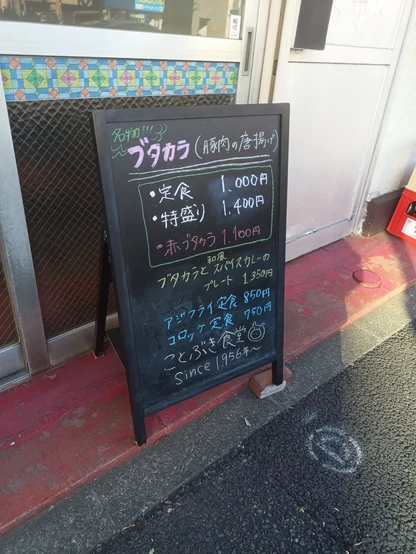 名物!!!
ブタカラ (豚肉の唐揚げ)
・定食 1.000円
・特盛り 1.400円
・赤ブタカラ 1.100円
和風
ブタカラとスパイスカレーの
プレート 1.350円
アジフライ定食 850円
コロッケ定食 750円
ことぶき食堂
Since 1956年〜